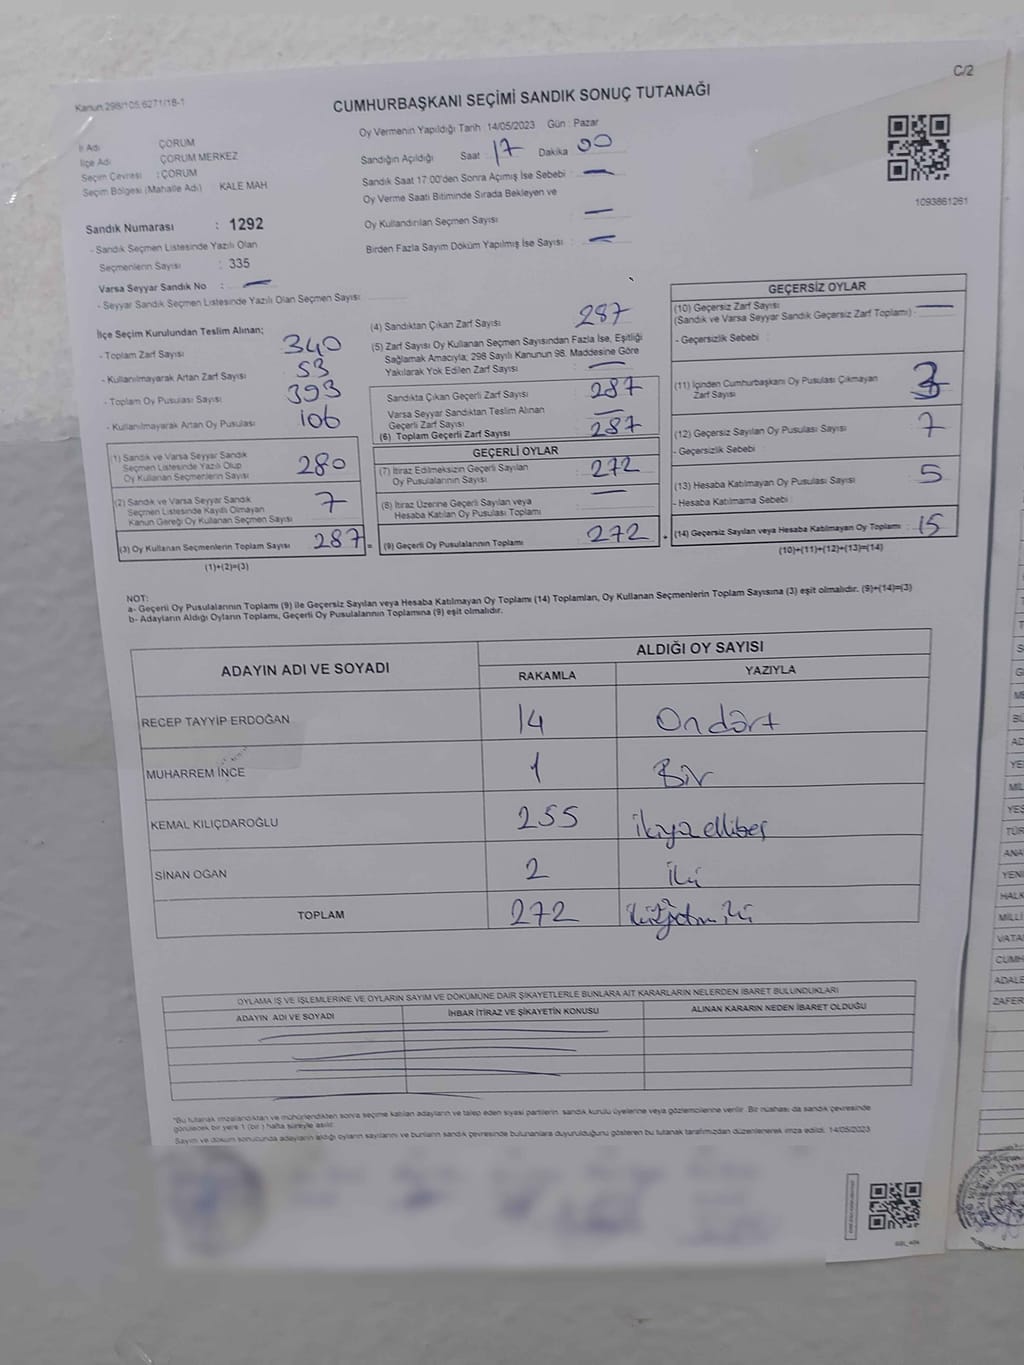 C/2
Kanun 298/105,6271/18-1
CUMHURBAŞKANI SEÇİMİ SANDIK SONUÇ TUTANAĞI
İl Adı ÇORUM
İlçe Adı ÇORUM MERKEZ
Seçim Çevresi : ÇORUM
Seçim Bölgesi (Mahalle Adı) KALE MAH.
Oy Vermenin Yapıldığı Tarih 14/05/2023 Gün : Pazar
Sandığın Açıldığı Saat 17 Dakika 00
Sandık Saat 17:00'den Sonra Açımış İse Sebebi : —
Oy Verme Saati Bitiminde Sırada Bekleyen ve
Oy Kullandırılan Seçmen Sayısı —
Birden Fazla Sayım Döküm Yapılmış İse Sayısı —
1093861261
Sandık Numarası : 1292
- Sandık Seçmen Listesinde Yazılı Olan
Seçmenlerin Sayısı : 335
Varsa Seyyar Sandık No : —
- Seyyar Sandık Seçmen Listesinde Yazılı Olan Seçmen Sayısı
İlçe Seçim Kurulundan Teslim Alınan;
- Toplam Zarf Sayısı 340
- Kullanılmayarak Artan Zarf Sayısı 53
- Toplam Oy Pusulası Sayısı 393
- Kullanılmayarak Artan Oy Pusulası 106
(1) Sandık ve Varsa Seyyar Sandık
Seçmen Listesinde Yazılı Olup
Oy Kullanan Seçmenlerin Sayısı 280
(2) Sandık ve Varsa Seyyar Sandık
Seçmen Listesinde Kayıtlı Olmayan
Kanun Gereği Oy Kullanan Seçmen Sayısı 7
(3) Oy Kullanan Seçmenlerin Toplam Sayısı 287 =
(1)+(2)=(3)
(4) Sandıktan Çıkan Zarf Sayısı 287
(5) Zarf Sayısı Oy Kullanan Seçmen Sayısından Fazla İse, Eşitliği
Sağlamak Amacıyla; 298 Sayılı Kanunun 98. Maddesine Göre
Yakılarak Yok Edilen Zarf Sayısı —
Sandıkta Çıkan Geçerli Zarf Sayısı 287
Varsa Seyyar Sandıktan Teslim Alınan
Geçerli Zarf Sayısı —
(6) Toplam Geçerli Zarf Sayısı 287
GEÇERLİ OYLAR
(7) İtiraz Edilmeksizin Geçerli Sayılan
Oy Pusulalarının Sayısı 272
(8) İtiraz Üzerine Geçerli Sayılan veya
Hesaba Katılan Oy Pusulası Toplamı —
(9) Geçerli Oy Pusulalarının Toplamı 272 +
GEÇERSİZ OYLAR
(10) Geçersiz Zarf Sayısı
(Sandık ve Varsa Seyyar Sandık Geçersiz Zarf Toplamı) —
- Geçersizlik Sebebi
(11) İçinden Cumhurbaşkanı Oy Pusulası Çıkmayan
Zarf Sayısı 3
(12) Geçersiz Sayılan Oy Pusulası Sayısı 7
- Geçersizlik Sebebi
(13) Hesaba Katılmayan Oy Pusulası Sayısı 5
- Hesaba Katılmama Sebebi
(14) Geçersiz Sayılan veya Hesaba Katılmayan Oy Toplamı 15
(10)+(11)+(12)+(13)=(14)
NOT:
a- Geçerli Oy Pusulalarının Toplamı (9) ile Geçersiz Sayılan veya Hesaba Katılmayan Oy Toplamı (14) Toplamları, Oy Kullanan Seçmenlerin Toplam Sayısına (3) eşit olmalıdır. (9)+(14)=(3)
b- Adayların Aldığı Oyların Toplamı, Geçerli Oy Pusulalarının Toplamına (9) eşit olmalıdır.
ADAYIN ADI VE SOYADI ALDIĞI OY SAYISI
RAKAMLA YAZIYLA
RECEP TAYYİP ERDOĞAN 14 On dört
MUHARREM İNCE 1 Bir
KEMAL KILIÇDAROĞLU 255 ikiyüzellibeş
SİNAN OĞAN 2 İki
TOPLAM 272
OYLAMA İŞ VE İŞLEMLERİNE VE OYLARIN SAYIM VE DÖKÜMÜNE DAİR ŞİKAYETLERLE BUNLARA AİT KARARLARIN NELERDEN İBARET BULUNDUKLARI
ADAYIN ADI VE SOYADI İHBAR İTİRAZ VE ŞİKAYETİN KONUSU ALINAN KARARIN NEDEN İBARET OLDUĞU
*Bu tutanak imzalandıktan ve mühürlendikten sonra seçime katılan adayların ve talep eden siyasi partilerin sandık kurulu üyelerine veya gözlemcilerine verilir. Bir nüshası da sandık çevresinde
görülecek bir yere 1 (bir) hafta süreyle asılır.
Sayım ve döküm sonucunda adayların aldığı oyların sayılarını ve bunların sandık çevresinde bulunanlara duyurulduğunu gösteren bu tutanak tarafımızdan düzenlenerek imza edildi. 14/05/2023